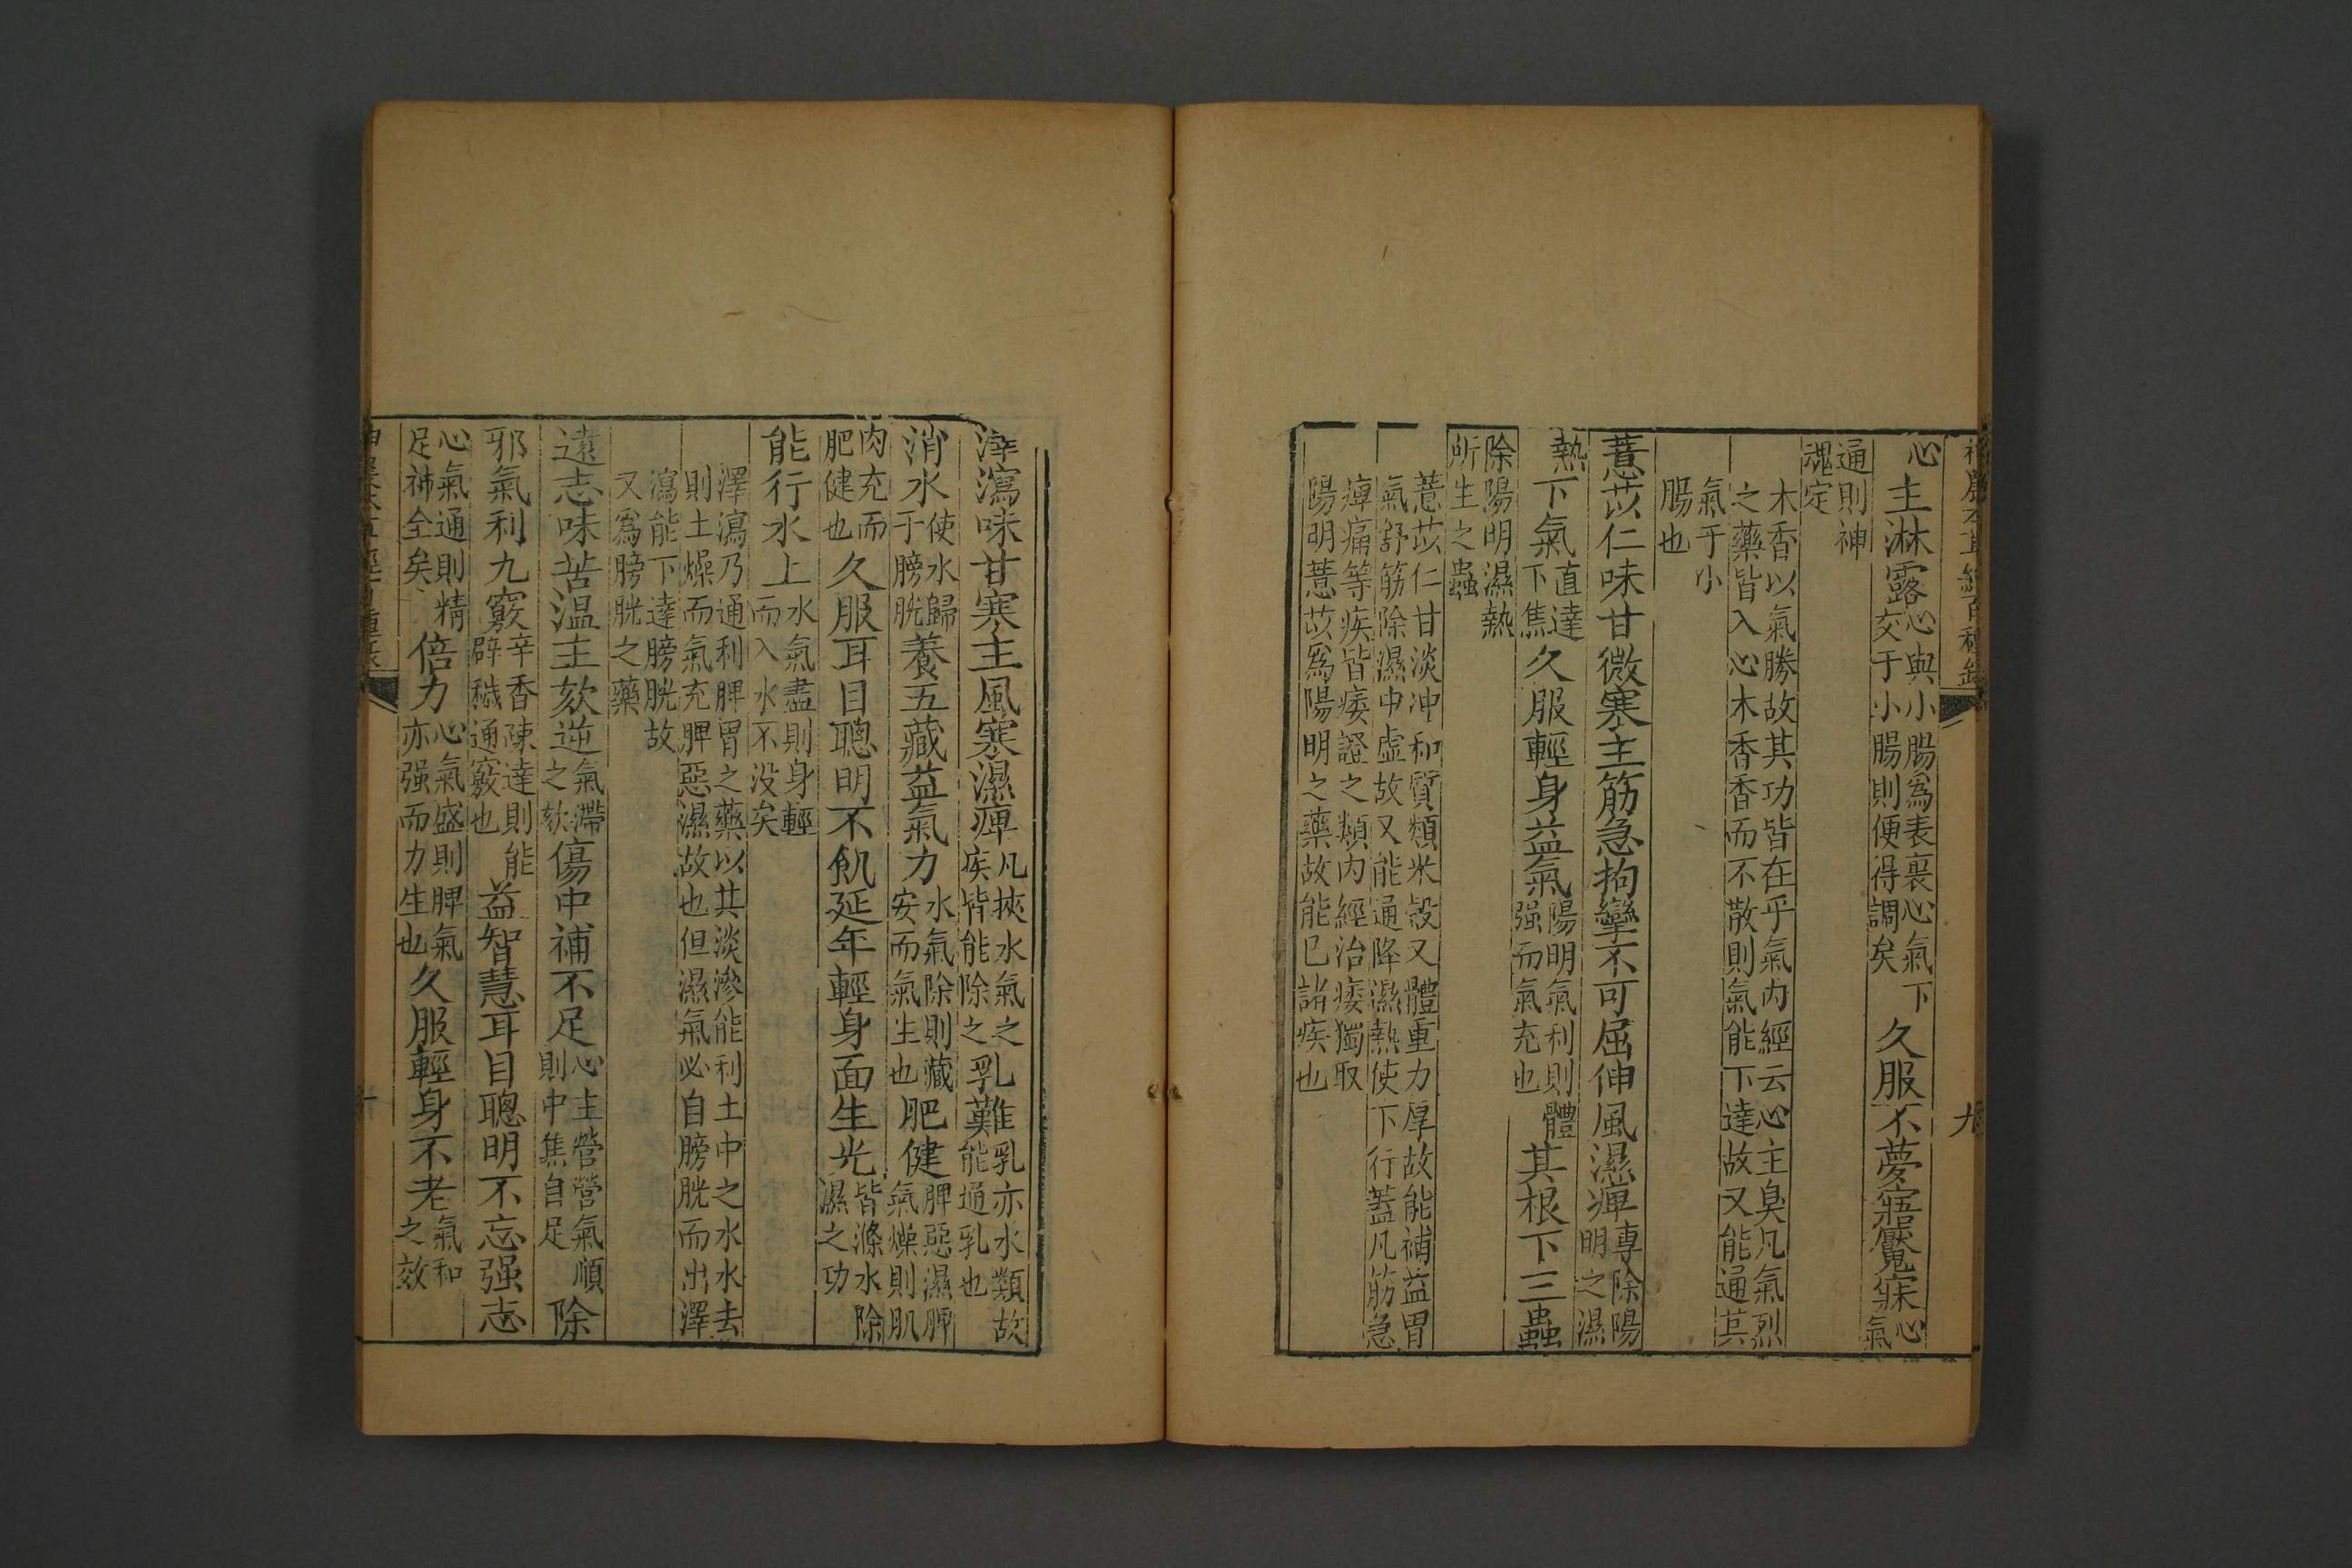 神農本草經百種錄 九
心主淋露心與小腸爲表裏心氣下交于小腸則便得調矣久服不夢寤魘寐心氣
通則神魂定
木香以氣勝故其功皆在乎氣內經云心主臭凡氣烈之藥皆入心木香香而不散則氣能下達故又能通其
氣于小腸也
薏苡仁味甘微寒主筋急拘攣不可屈伸風濕痺專除陽明之濕
熱下氣直達下焦久服輕身益氣陽明氣利則體强而氣充也其根下三蟲
除陽明濕熱所生之蟲
薏苡仁甘淡沖和質類米穀又體重力厚故能補益胃氣舒筋除濕中虛故又能通降濕熱使下行蓋凡筋急
痺痛等疾皆痿證之類內經治痿獨取陽明薏苡爲陽明之藥故能已諸疾也
澤瀉味甘寒主風寒濕痺凡挾水氣之疾皆能除之乳難乳亦水類故能通乳也
消水使水歸于膀胱養五藏益氣力水氣除則藏安而氣生也肥健脾惡濕脾氣燥則肌
肉充而肥健也久服耳目聰明不飢延年輕身面生光皆滌水除濕之功
能行水上水氣盡則身輕而入水不没矣
澤瀉乃通利脾胃之藥以其淡滲能利土中之水水去則土燥而氣充脾惡濕故也但濕氣必自膀胱而出澤
瀉能下達膀胱故又爲膀胱之藥
遠志味苦温主欬逆氣滯之欬傷中補不足心主營營氣順則中焦自足除
邪氣利九竅辛香疎達則能辟穢通竅也益智慧耳目聰明不忘强志
心氣通則精足神全矣倍力心氣盛則脾氣亦强而力生也久服輕身不老氣和之效